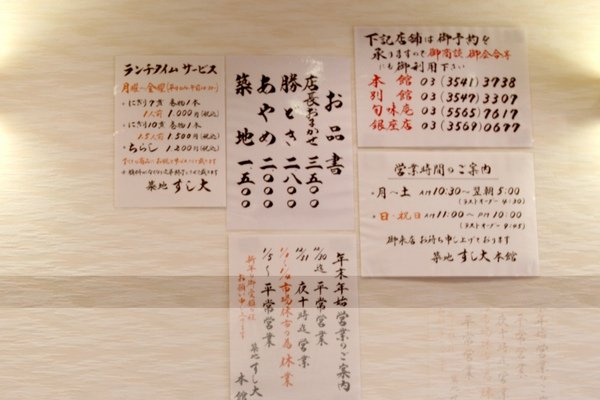 ランチタイム サービス
月曜～金曜
・にぎり7ヶ 巻物1本
1人前 1,000円(税込)
・にぎり10ヶ 巻物1本
1.5人前 1,500円(税込)
・ちらし 1,200円(税込)
築地 すし大
お品書
店長おまかせ 三五〇〇
勝どき 二八〇〇
あやめ 二〇〇〇
築地 一五〇〇
下記店舗は御予約を
承りますので御商談、御会合等
にも御利用下さい
本館 03(3541)3738
別館 03(3547)3307
旬味庵 03(5565)7617
銀座店 03(3569)0677
営業時間のご案内
・月～土 AM10:30～翌朝5:00
(ラストオーダー4:30)
・日・祝日 AM11:00～PM10:00
(ラストオーダー9:45)
御来店お待ち申し上ております
築地 すし大 本館
年末年始営業のご案内
12/30迄 平常営業
12/31 夜十時迄営業
1/1～1/4 市場休市の為 休業
1/5～平常営業
築地 すし大 本館